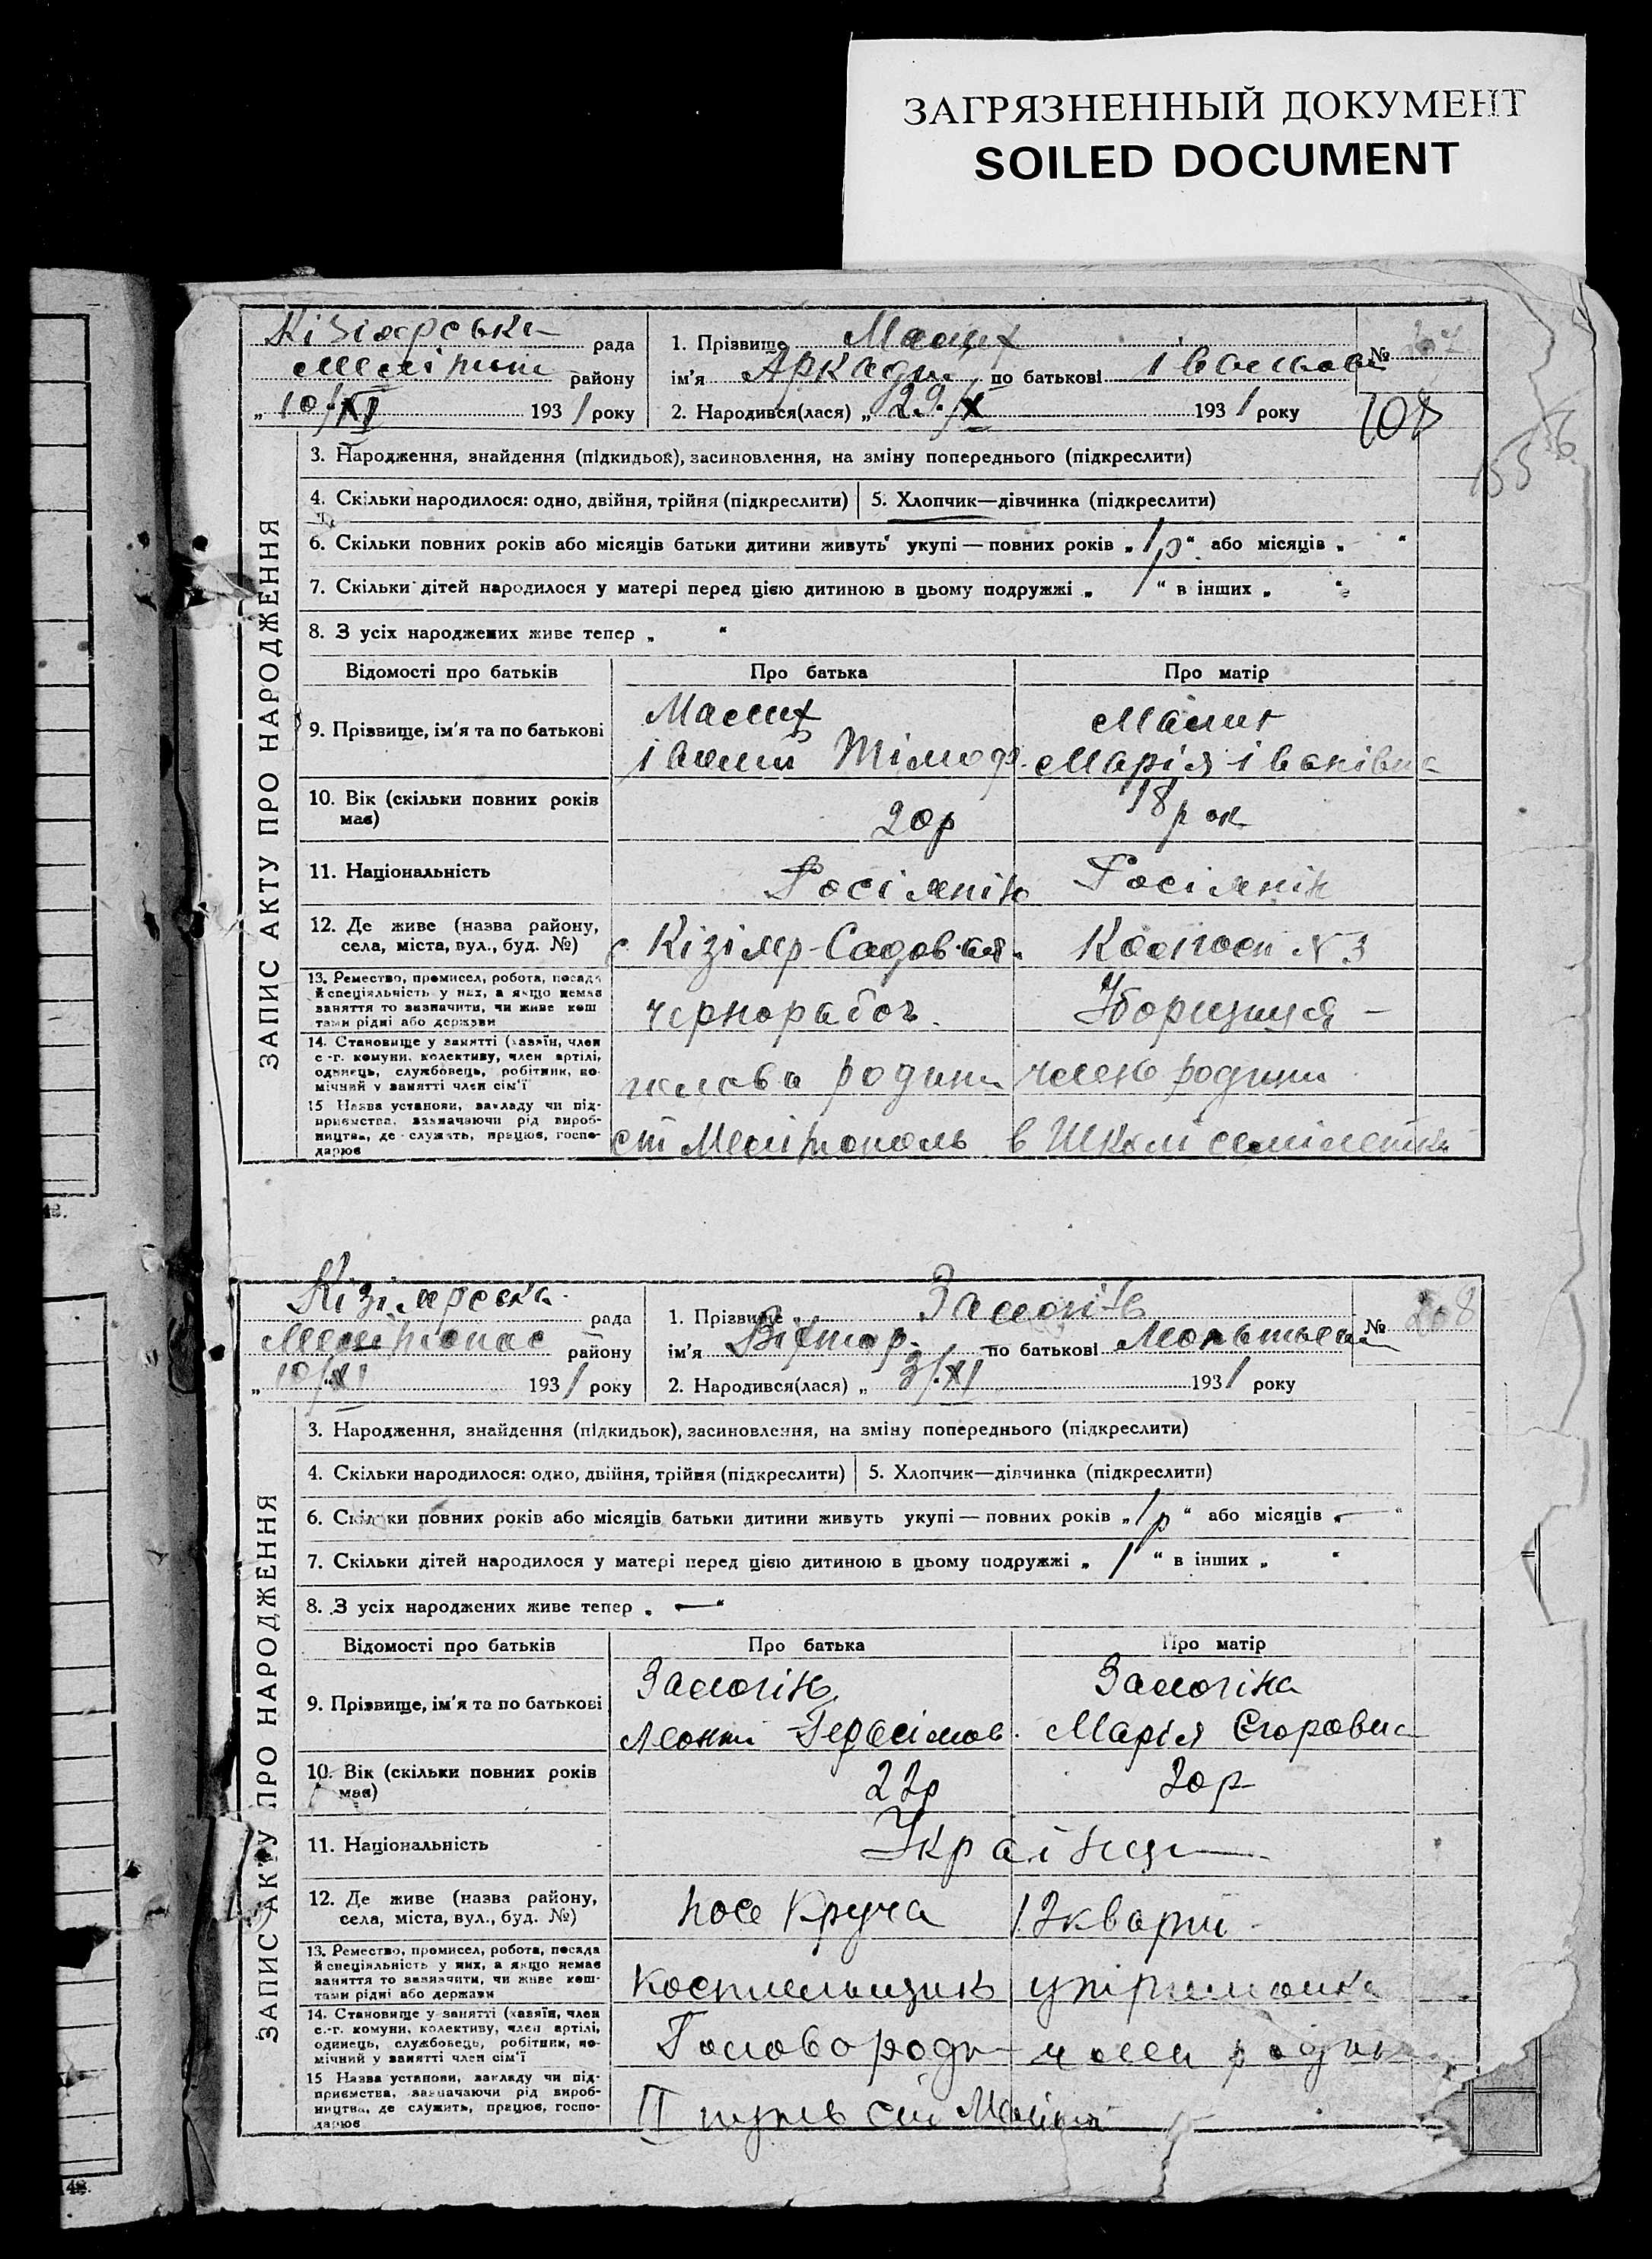 ЗАГРЯЗНЕННЫЙ ДОКУМЕНТ
SOILED DOCUMENT
ЗАПИС АКТУ ПРО НАРОДЖЕННЯ
Кізіярська рада
району
„10/XI 1931 року
1. Прізвище Малих
№ 207
ім'я Аркадій по батькові
2. Народився(лася) „29/X 1931 року
107
3. Народження, знайдення (підкидьок), засиновлення, на зміну попереднього (підкреслити)
4. Скільки народилося: одно, двійня, трійня (підкреслити)
5. Хлопчик—дівчинка (підкреслити)
6. Скільки повних років або місяців батьки дитини живуть укупі — повних років „1р“ або місяців „ “
7. Скільки дітей народилося у матері перед цією дитиною в цьому подружжі „ 1 “ в інших „ “
8. З усіх народжених живе тепер „ “
Відомості про батьків Про батька Про матір
9. Прізвище, ім'я та по батькові
Малих Малих
Тімоф. Марія Іванівна
10. Вік (скільки повних років має)
20р 18 рок
11. Національність
Росіянін Росіянін
12. Де живе (назва району, села, міста, вул., буд. №)
с. Кізіяр-Садовая. N 3
13. Ремество, промисел, робота, посада й спеціяльність у них, а якщо немає заняття то зазначити, чи живе кош тами рідні або держави
чернорабоч. Уборщиця
14. Становище у занятті (хазяїн, член с.-г. комуни, колективу, член артілі, одинець, службовець, робітник, помічний у занятті член сім'ї
голова родини член родини
15 Назва установи, закладу чи підприємства, зазначаючи рід виробництва, де служить, працює, господарює
ст Мелітополь в Школі семілетки
ЗАПИС АКТУ ПРО НАРОДЖЕННЯ
Кізіярська рада
району
„10/XI 1931 року
1. Прізвище Замогін
№ 208
ім'я Віктор по батькові
2. Народився(лася) „3/XI 1931 року
3. Народження, знайдення (підкидьок), засиновлення, на зміну попереднього (підкреслити)
4. Скільки народилося: одно, двійня, трійня (підкреслити)
5. Хлопчик—дівчинка (підкреслити)
6. Скільки повних років або місяців батьки дитини живуть укупі — повних років „1р“ або місяців „—“
7. Скільки дітей народилося у матері перед цією дитиною в цьому подружжі „ 1 “ в інших „ “
8. З усіх народжених живе тепер „—“
Відомості про батьків Про батька Про матір
9. Прізвище, ім'я та по батькові
Замогін Замогіна
Леонти Герасімов. Марія Єгоровна
10. Вік (скільки повних років має)
22р 20р
11. Національність
Українци
12. Де живе (назва району, села, міста, вул., буд. №)
пос Круча 12 кварт
13. Ремество, промисел, робота, посада й спеціяльність у них, а якщо немає заняття то зазначити, чи живе коштами рідні або держави
14. Становище у занятті (хазяїн, член с.-г. комуни, колективу, член артілі, одинець, службовець, робітник, помічний у занятті член сім'ї
Голова роди член родин
15 Назва установи, закладу чи підприємства, зазначаючи рід виробництва, де служить, працює, господарює